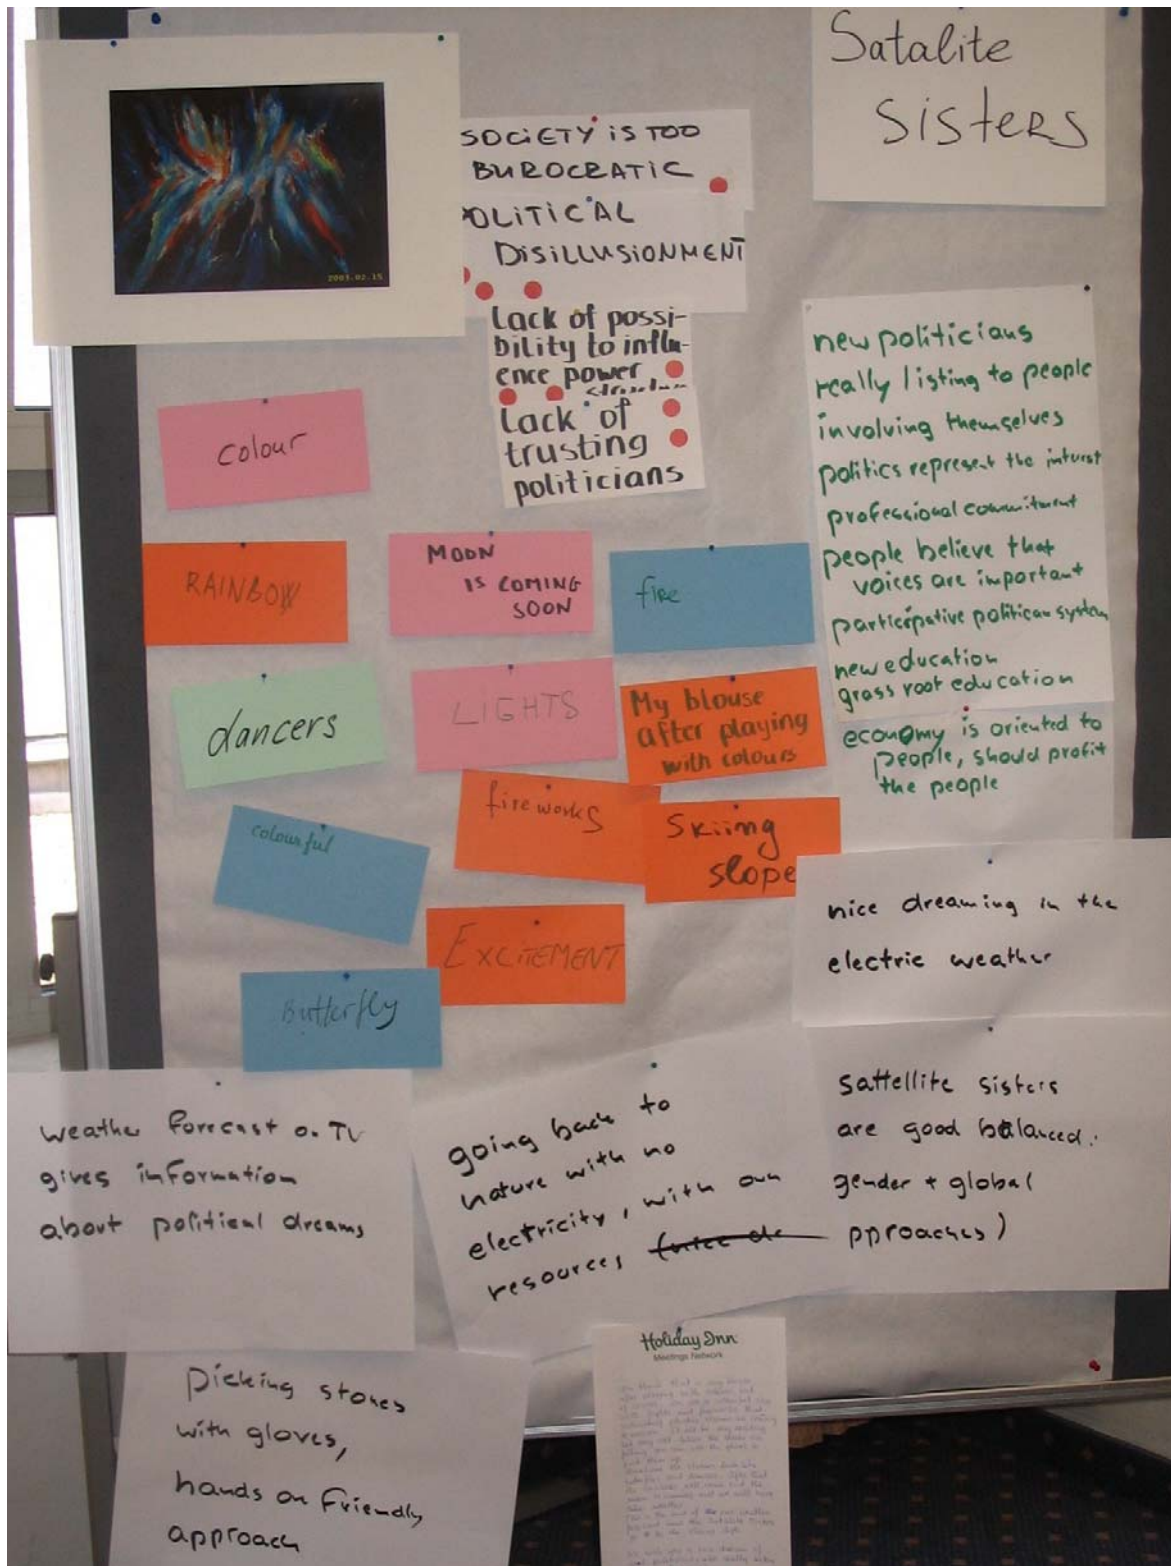 Satalite
Sisters
2003.02.15
SOCIETY IS TOO
BUROCRATIC
POLITICAL
DISILLUSIONMENT
Lack of possi-
bility to influ-
ence power
Lack of
trusting
politicians
new politicians
really listing to people
involving themselves
politics represent the interst
professional commitment
people believe that
voices are important
participative politican system
new education
grass root education
economy is oriented to
people, should profit
the people
colour
RAINBOW
MOON
IS COMING
SOON
fire
dancers
LIGHTS
My blouse
after playing
with colours
colourful
fireworks
Skiing
slope
EXCITEMENT
Butterfly
nice dreaming in the
electric weather
weather forecast on TV
gives information
about political dreams
going back to
nature with no
electricity, with own
resources
sattellite sisters
are good balanced:
gender + global
pproaches)
picking stones
with gloves,
hands on friendly
approach
Holiday Inn
Meetings Network